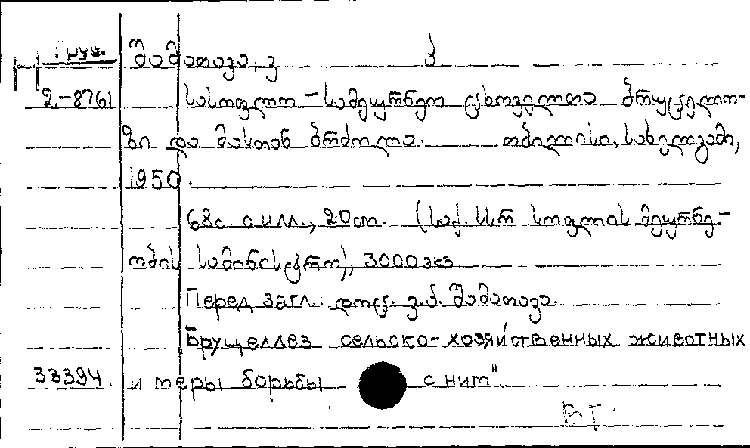 Груз.
შამათავა, ვ
2-8761 სასოფლო-სამეურნეო ცხოველთა ბრუცელო-
ზი და მასთან ბრძოლა. თბილისი, სახელგამი,
1950.
68с. илл., 20см. (საქ. სსრ სოფლის მეურნე-
ობის სამინისტრო), 3000 экз
Перед загл. დოც. ვ. პ. შამათავა
Бруцеллез сельско-хозяйственных животных
33394 и меры борьбы с ним"